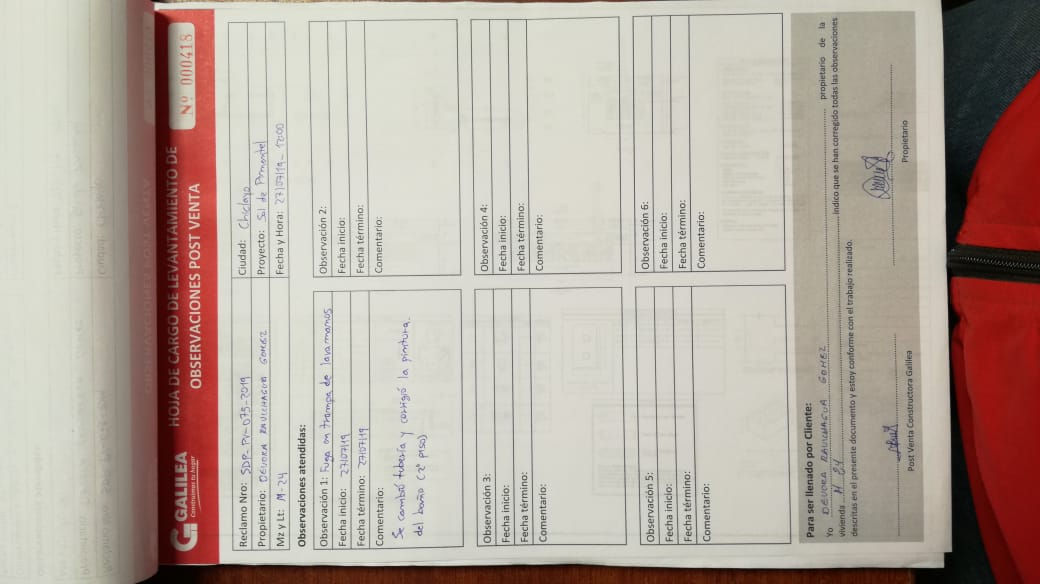 GALILEA
Construimos tu hogar
HOJA DE CARGO DE LEVANTAMIENTO DE
OBSERVACIONES POST VENTA
Nº 000418
Reclamo Nro: SDP-PV-075-2019
Ciudad: Chiclayo
Propietario: DEVORA RAVICHAGUA GOMEZ
Proyecto: Sol de Pimentel
Mz y Lt: M-24
Fecha y Hora: 27/07/19 - 12:00
Observaciones atendidas:
Observación 1: Fuga en trampa de lavamanos
Fecha inicio: 27/07/19
Fecha término: 27/07/19
Comentario:
Se cambió tubería y corrigió la pintura.
del baño (2° piso)
Observación 2:
Fecha inicio:
Fecha término:
Comentario:
Observación 3:
Fecha inicio:
Fecha término:
Comentario:
Observación 4:
Fecha inicio:
Fecha término:
Comentario:
Observación 5:
Fecha inicio:
Fecha término:
Comentario:
Observación 6:
Fecha inicio:
Fecha término:
Comentario:
Para ser llenado por Cliente:
Yo DEVORA RAVICHAGUA GOMEZ propietario de la
vivienda M 24 indico que se han corregido todas las observaciones
descritas en el presente documento y estoy conforme con el trabajo realizado.
Post Venta Constructora Galilea
Propietario